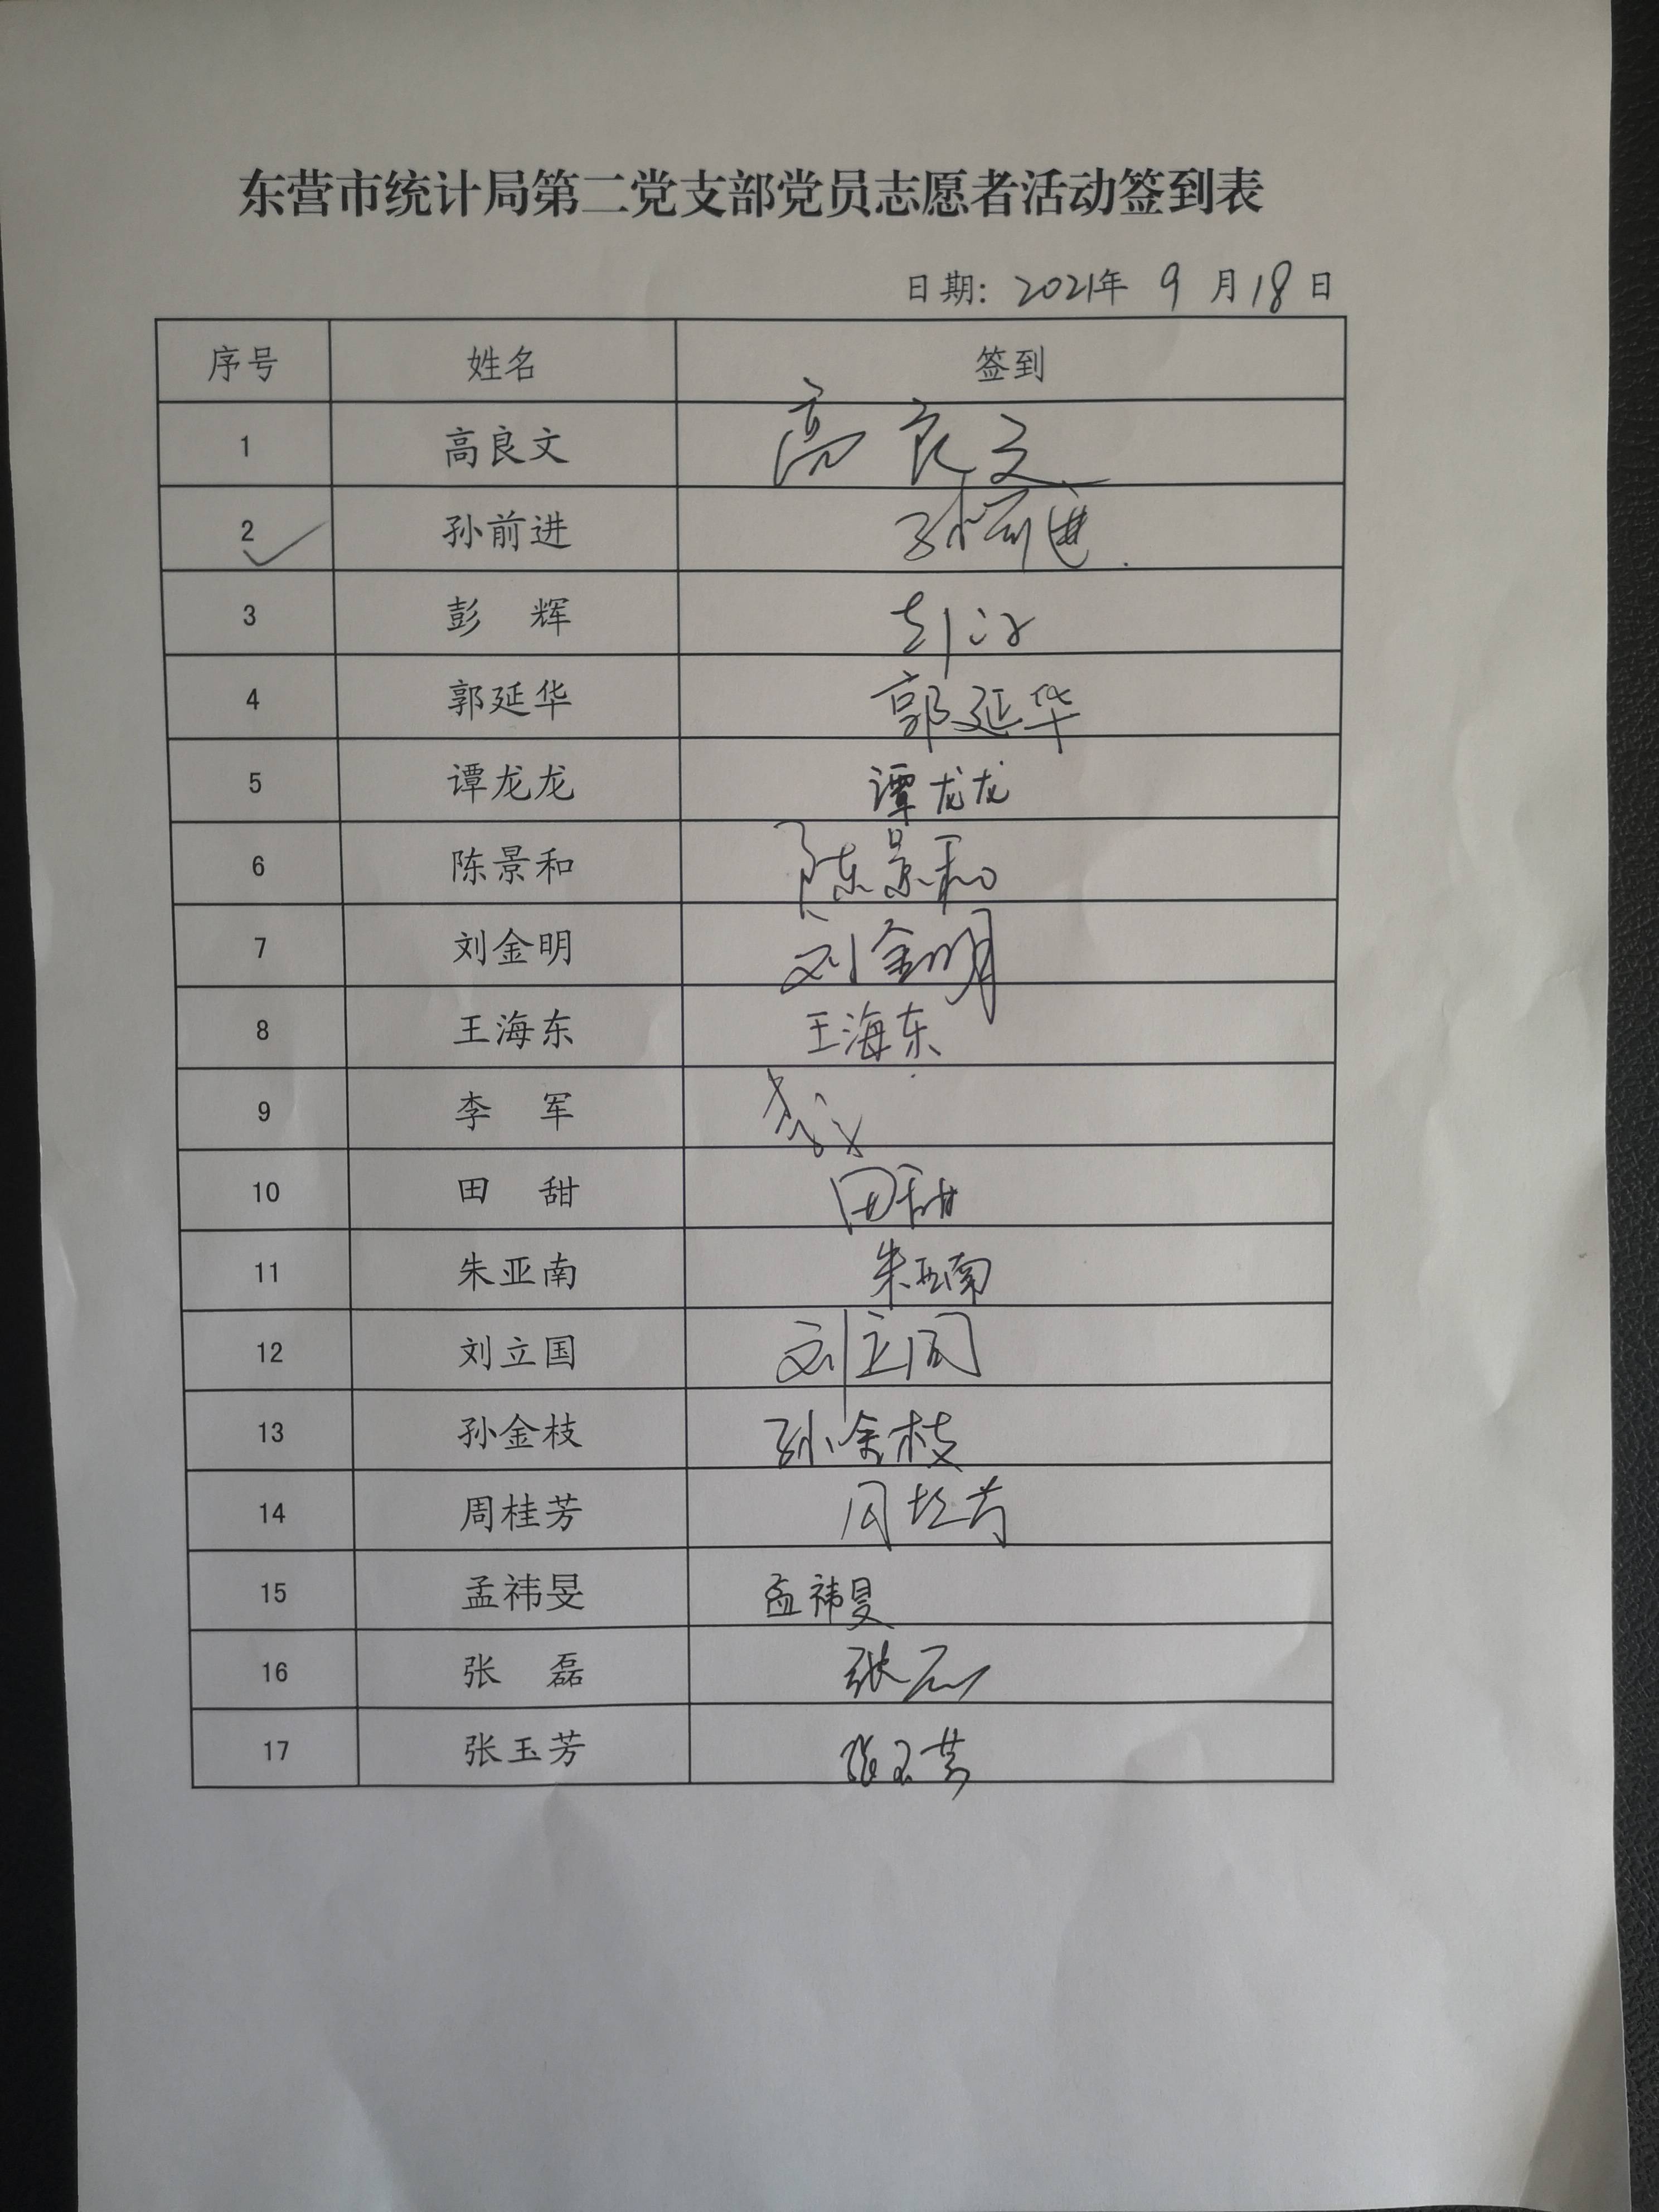 东营市统计局第二党支部党员志愿者活动签到表
日期: 2021年 9 月 18 日
序号 姓名 签到
1 高良文 高良文
2 孙前进 孙前进
3 彭 辉
4 郭延华 郭延华
5 谭龙龙 谭龙龙
6 陈景和 陈景和
7 刘金明 刘金明
8 王海东 王海东
9 李 军
10 田 甜 田甜
11 朱亚南 朱亚南
12 刘立国 刘立国
13 孙金枝 孙金枝
14 周桂芳 周桂芳
15 孟祎旻 孟祎旻
16 张 磊 张磊
17 张玉芳 张玉芳